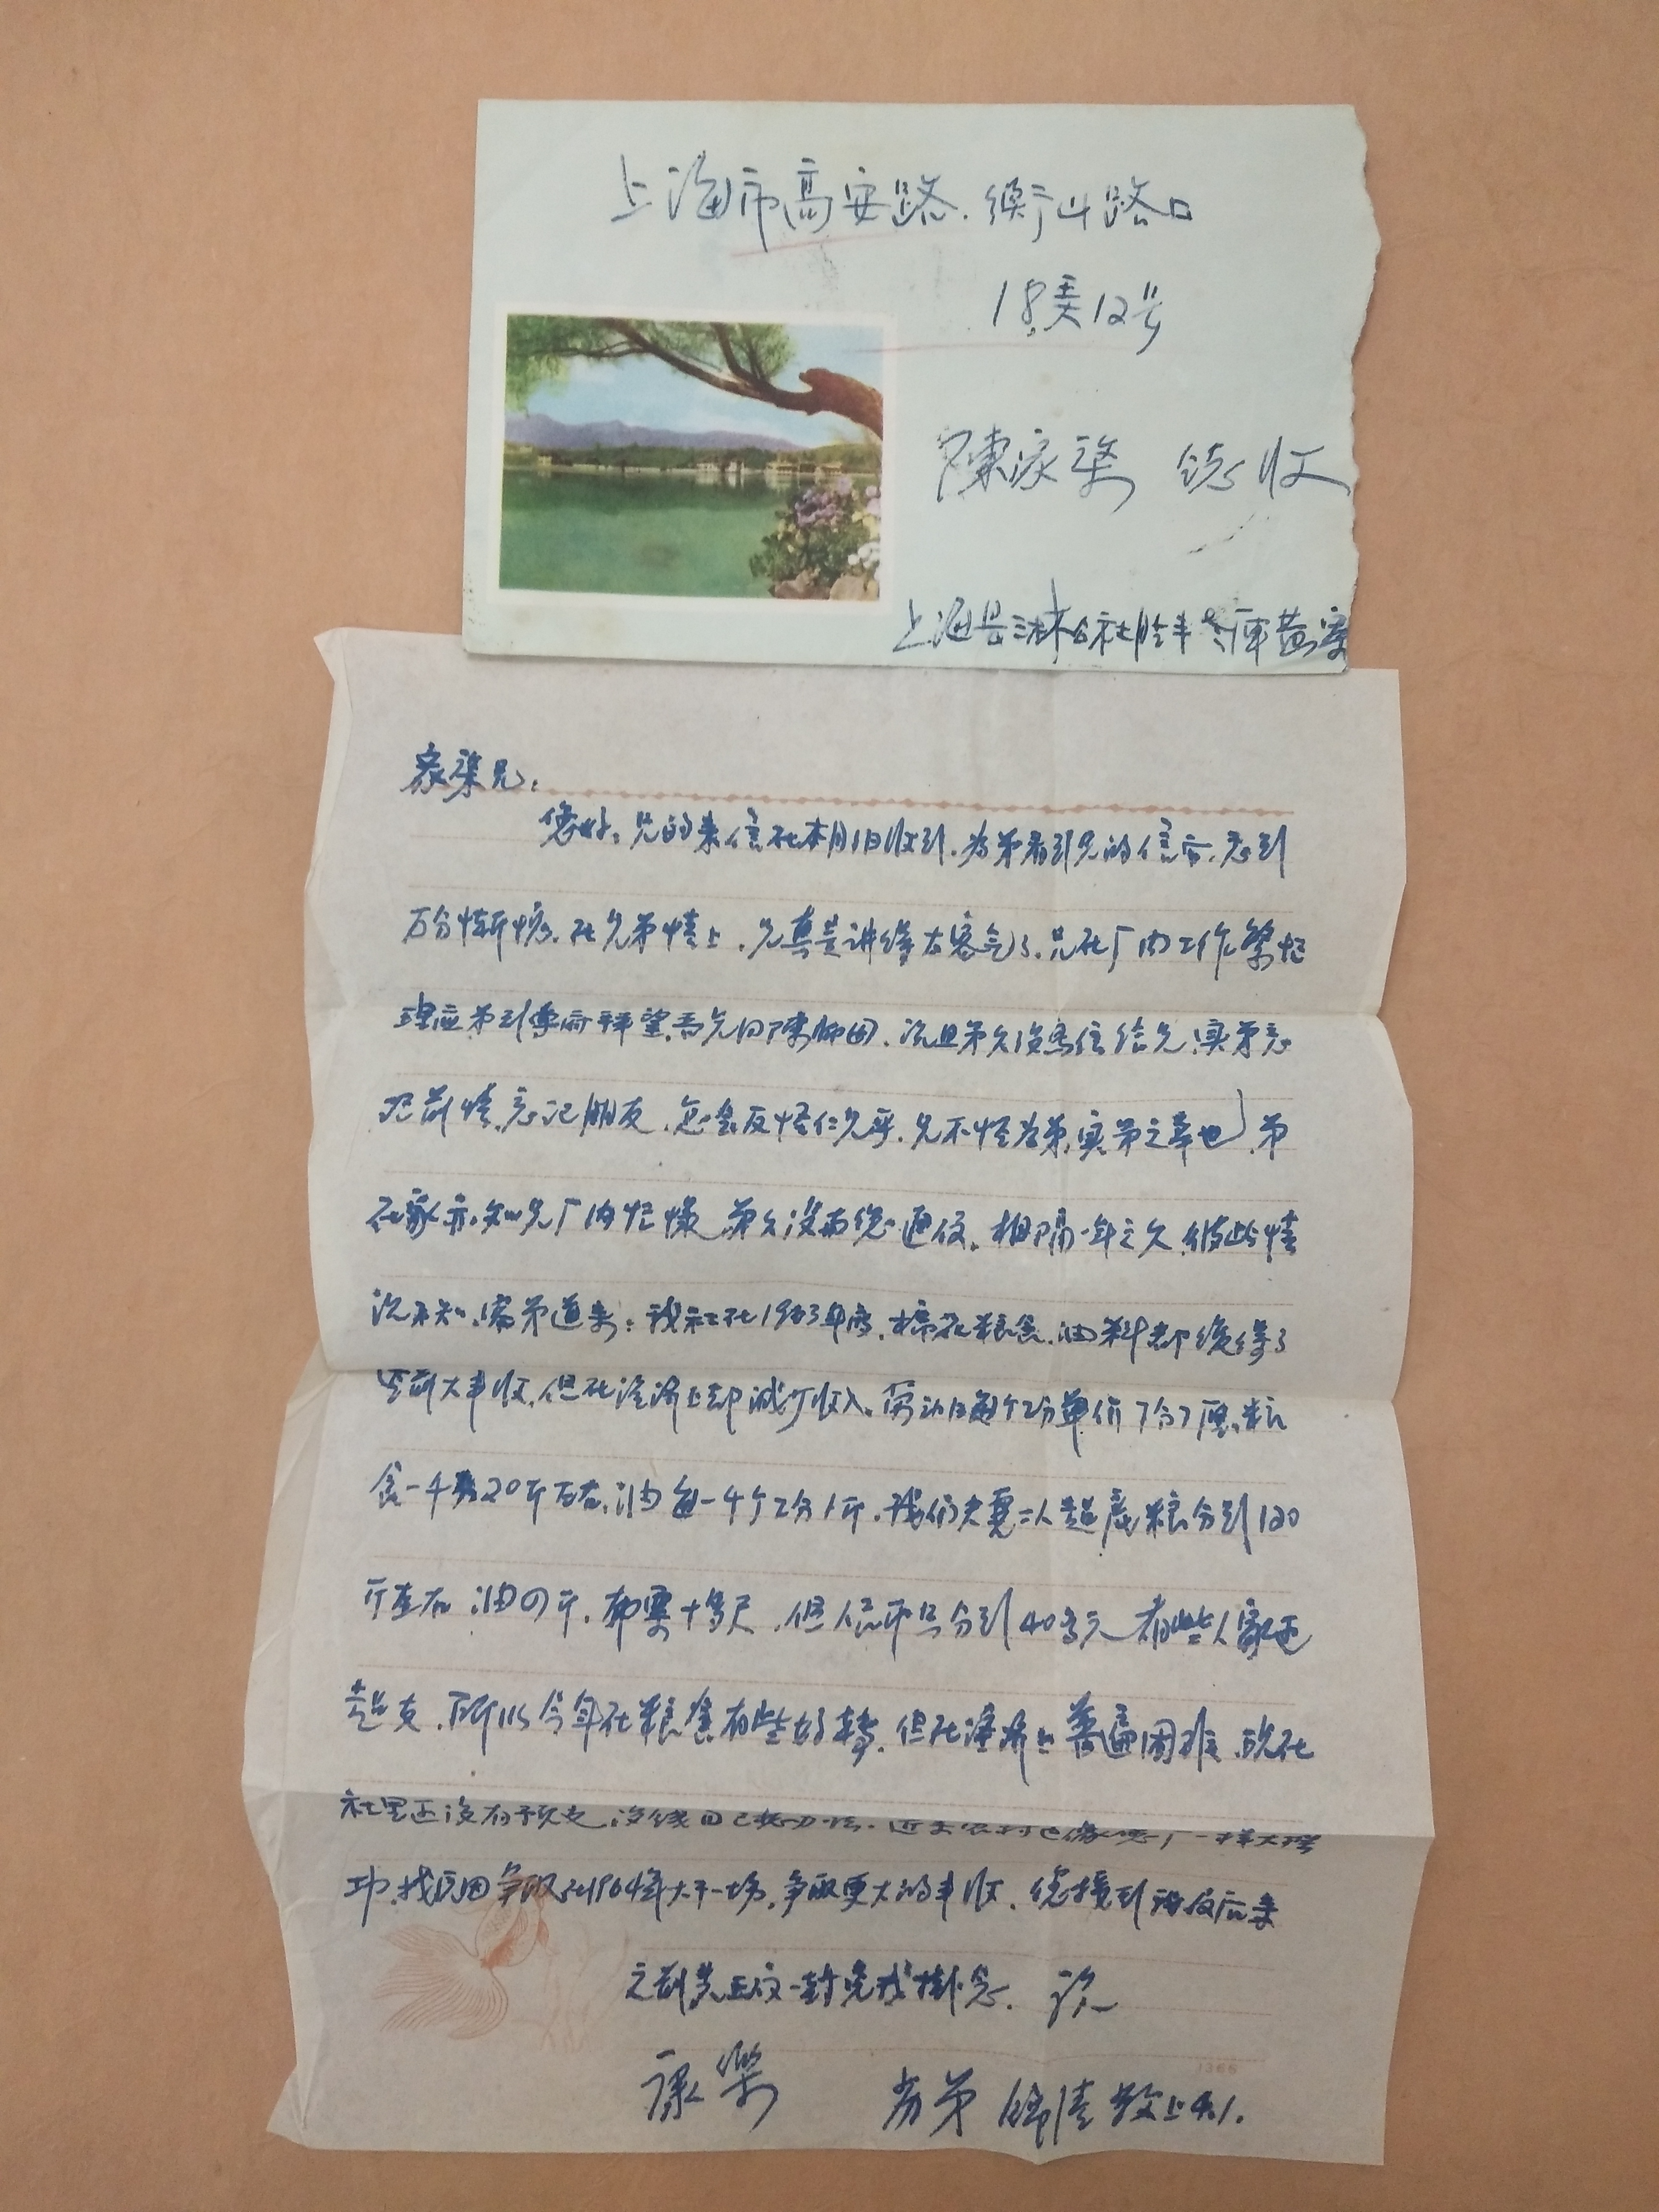 上海市高安路.衡山路口
18弄12号
陳家渠 您收
上海县三林公社胜丰 厍黄家
家渠兄:
您好。兄的来信在本月1日收到.为弟看到兄的信后.感到
万分惭愧.在兄弟情上.兄真是讲得太客气了.兄在厂内工作繁忙
理应弟到 府拜望 兄 .况且弟久没写信给兄.实弟忘
记前情.忘记朋友.怎会反怪仁兄乎.兄不怪为弟,实弟之幸也.弟
在家亦知兄厂内忙 弟久没和您通信.相隔一年之久.彼此情
况不知.需弟道来:我社在1963年度.棉花粮食.油料都获得了
空前大丰收.但在经济上却减少收入.劳动日每个工分单价7分7厘.粮
食一千 20斤左右.油每一千个工分1斤.我们夫妻二人超产粮分到120
斤左右 油四斤.布票十多尺.但人民币只分到40多元 有些人家还
超支.所以今年在粮食有些好转.但在经济上普遍困难.现在
社里还没有预支.没钱自己找办法.近来农村也像您厂一样大
功.找原因争取在1964年大干一场.争取更大的丰收.您接到 后来
之前先 一封免我掛念. 祝
康樂 劣弟 清敬上4.1.
1366